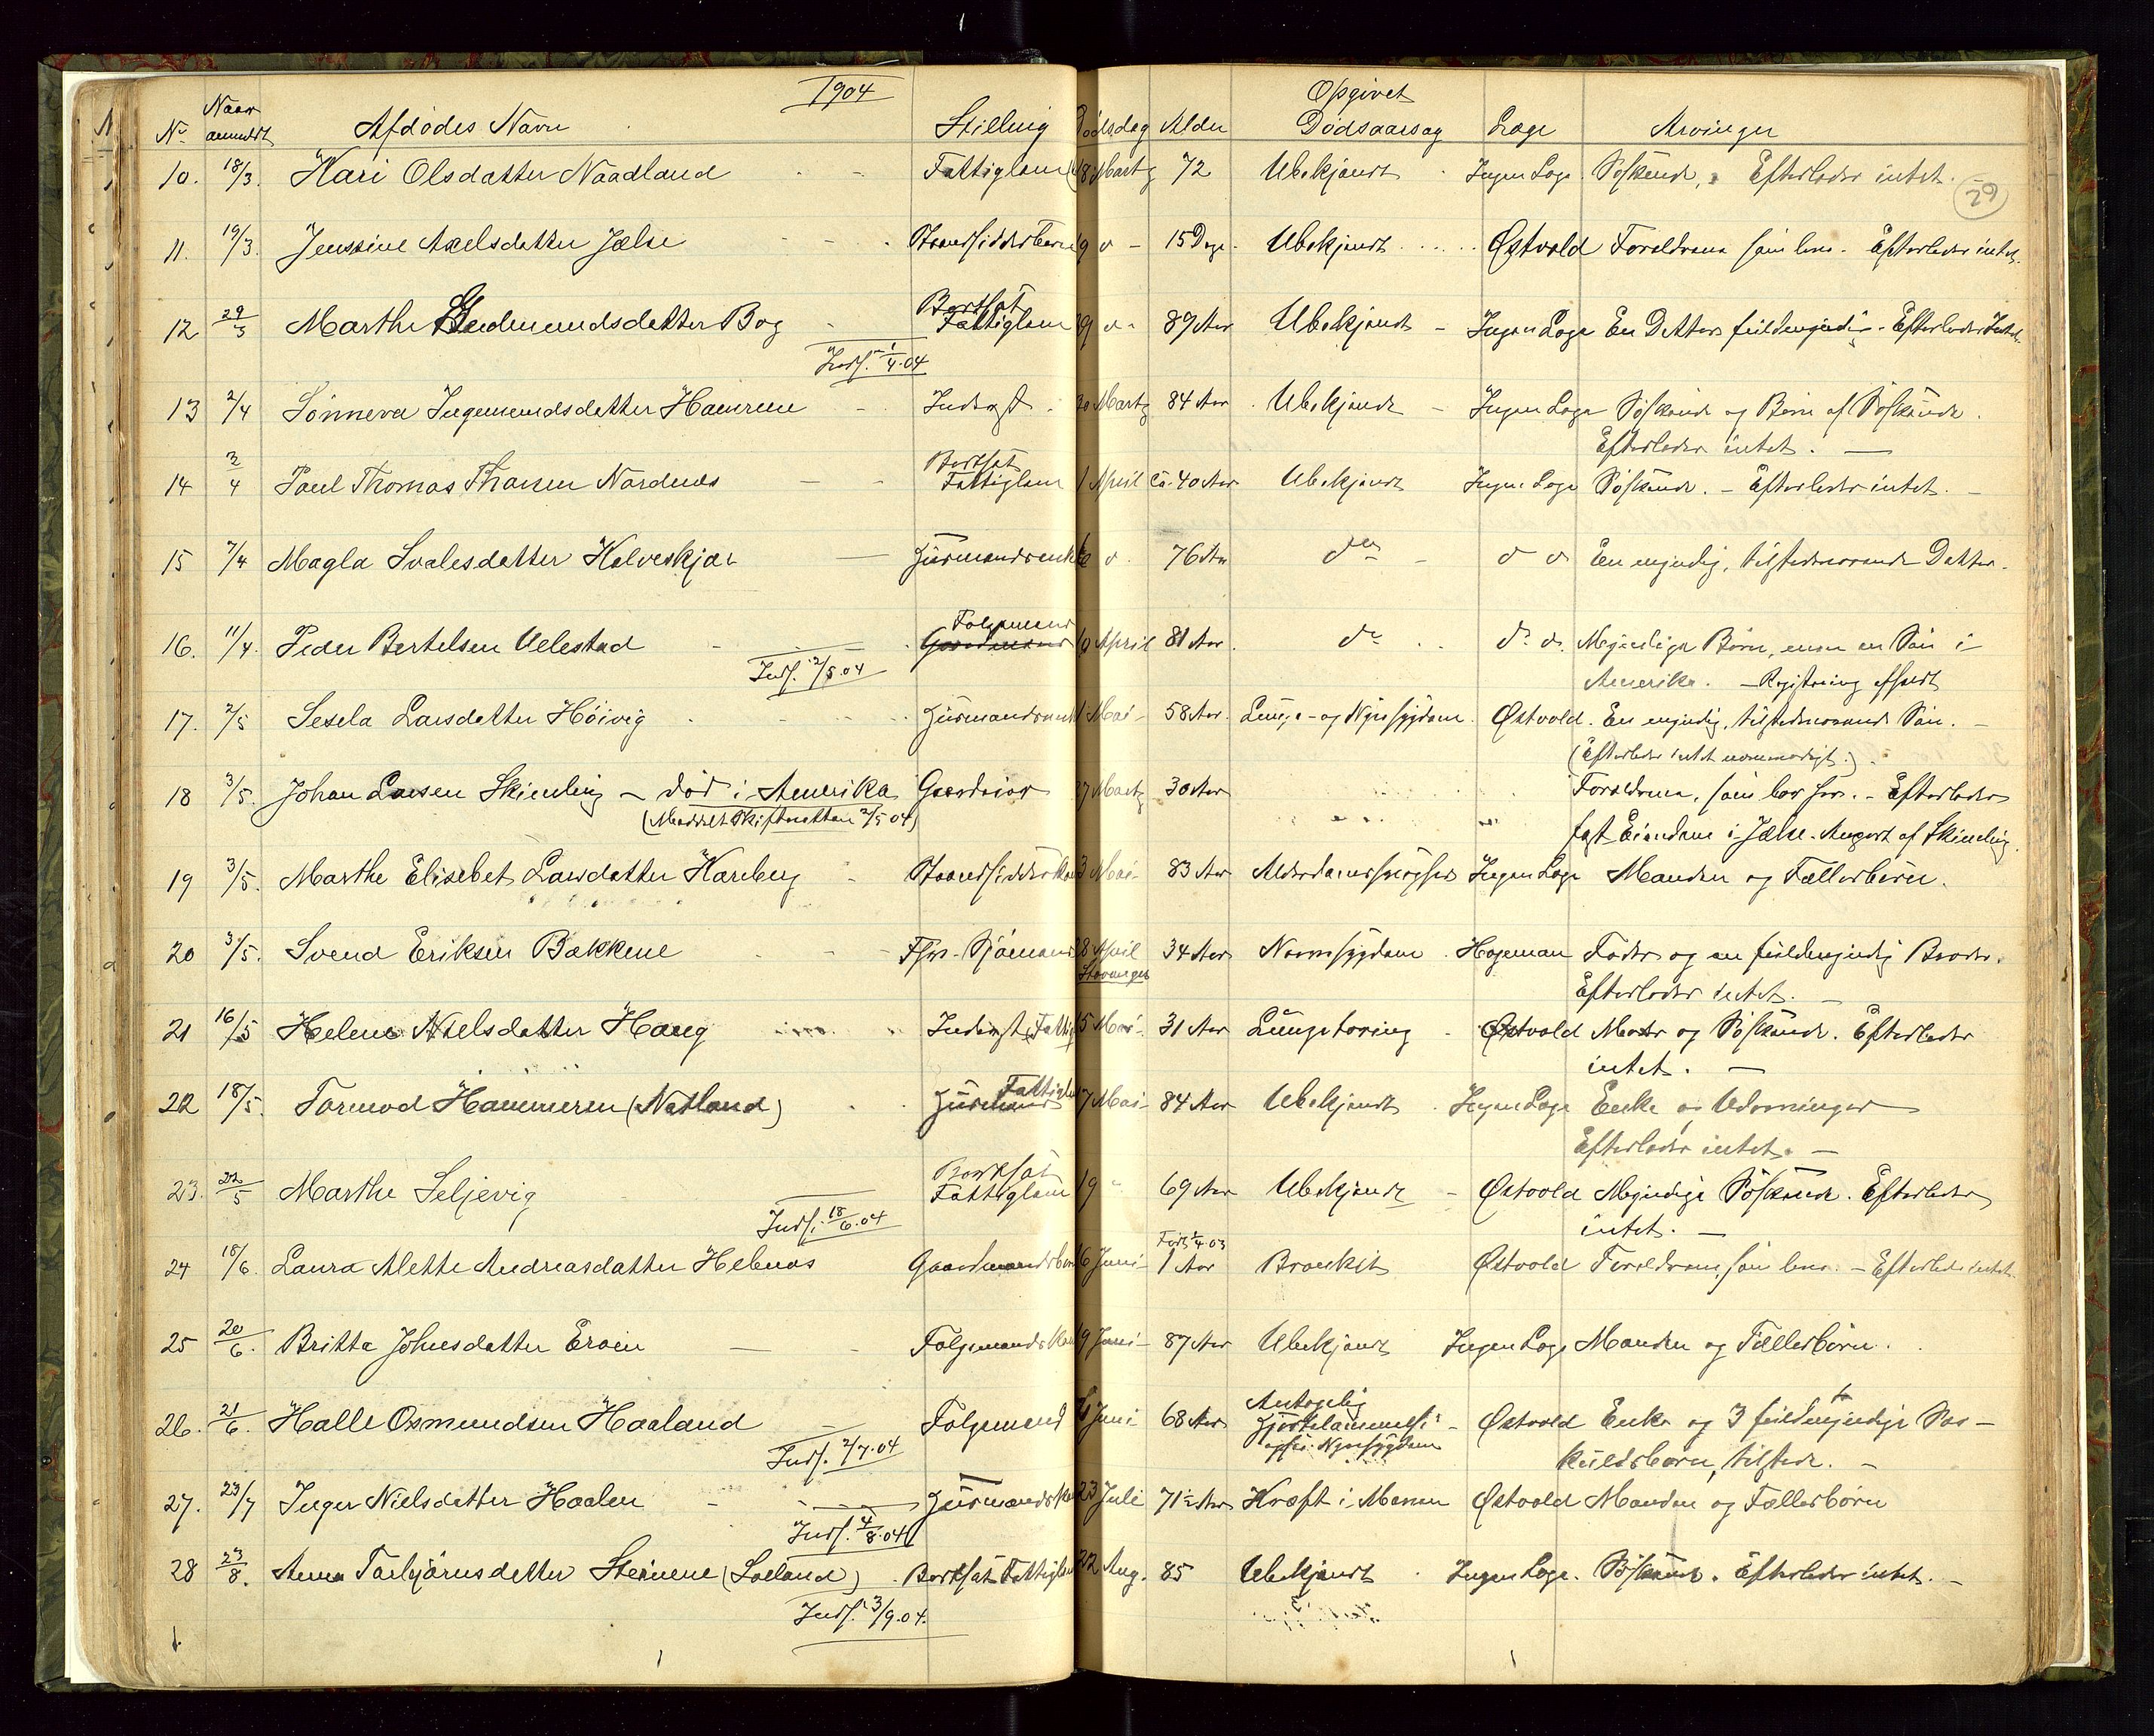 1904
No Naar anmeldt Afdødes Navn Stilling Dødsdag Alder Opgivet Dødsaarsag Læge Arvinger
29
10. 18/3. Kari Olsdatter Naadland - - Fattiglem 18 Martz 72 Ubekjendt Ingen Læge Søskende, Efterlader intet. -
11. 19/3. Jenssine Axelsdatter Jælse - - Strandsidderbarn 9 d - 15 Dage. Ubekjendt Østvold Forældrene som leve. Efterlader intet.
Bortsat
12 29/3 Marthe Gudmundsdatter Bog - Fattiglem 29 d - 87 Aar Ubekjendt - Ingen Læge En Datter fuldmyndig. - Efterlader Intet.
Inds. 1/4.04
13 2/4 Sønneva Ingemundsdatter Hamrene - Inderst. 30 Martz 84 Aar Ubekjendt - Ingen Læge Søskende og Børn af Søskende.
Efterlader intet. -
Bortsat
14 2/4 Paul Thomas Thorsen Nordnæs - - Fattiglem 1 April Ca. 40 Aar Ubekjendt Ingen Læge Søskende. - Efterlader intet. -
15 7/4 Magla Svalesdatter Kalveskjær - Husmandsenke 6 d. 76 Aar do - d d En myndig, tilstedeværende Datter.
Følgemand
16. 11/4. Peder Bertelsen Velestad - Gaardmand 10 April 81 Aar. do d. d. Myndige Børn, men en Søn i
Inds. 2/5.04
Amerika. - Registrering afholdt
17. 2/5 Sesela Larsdatter Høivig Husmandsenke 1 Mai - 58 Aar. Lunge- og Nyresygdom. Østvold. En myndig, tilstedeværende Søn. -
(Efterlader intet nævneværdigt.)
18 3/5. Johan Larsen Skimling - død i Amerika Gaardeier 27 Martz 30 Aar Forældrene, som bor her. - Efterlader
(Meddelt Skifteretten 2/5 04)
fast Eiendom i Jælse. Anpart af Skimling.
19 3/5. Marthe Elisebet Larsdatter Harberg - Strandsidderkone 3 Mai - 83 Aar Alderdomssvaghed Ingen Læge Manden og Fællesbørn.
20 3/5. Svend Eriksen Bakkene - - Fhv. Sjømand 28 April 34 Aar Nervesygdom. Hageman Fader og en fuldmyndig Broder.
Stavanger
Efterlader intet. -
21 16/5 Helene Nielsdatter Haug Inderst (Fattig) 15 Mai - 31 Aar Lungetæring - Østvold Moder og Søskende. Efterlader
intet. -
Fattiglem
22 18/5. Tormod Hammeren (Natland) Husmand 17 Mai - 84 Aar Ubekjendt Ingen Læge Enke og Udarvinger
Efterlader intet. -
Bortsat
23. 22/5 Marthe Seljevig Fattiglem 19 " 69 Aar Ubekjendt - Østvold Myndige Søskende. Efterlader
Inds. 18/6.04
intet. -
Født 2/4 03
24 18/6. Laura Alette Andreasdatter Hebnæs Gaardmandsbarn 16 Juni - 1 Aar Bronkit Østvold Forældrene, som leve. - Efterlader intet
25 20/6. Britta Johnsdatter Eroen - - Følgemandskone 19 Juni - 87 Aar Ubekjendt Ingen Læge Manden og Fællesbørn.
Antagelig
26. 21/6. Halle Osmundsen Haaland - Følgemand Juni 68 Aar Hjertelammelse - Østvold Enke og 3 fuldmyndige Sær-
Inds. 2/7.04
ogsaa Nyresygdom
kuldsbørn, tilstede. -
27. 23/7 Inger Nielsdatter Haalen - Husmandskone 23 Juli 71½ Aar Kræft i Maven Østvold Manden og Fællesbørn
Inds. 4/8.04
28 23/8. Anna Torbjørnsdatter Steinene (Løland). Bortsat Fattiglem 22 Aug. 85 Ubekjendt Ingen Læge. Søskende. Efterlader intet. -
Inds. 3/9.04.